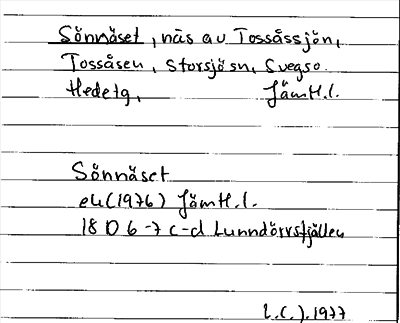 Sönnäset, näs av Tossåssjön,
Tossåsen, Storsjö sn, Svegs o.
Hedetg, Jämtl. l.
Sönnäset
ek (1976) Jämtl. l.
18 D 6-7 c-d Lunndörrsfjällen
1977